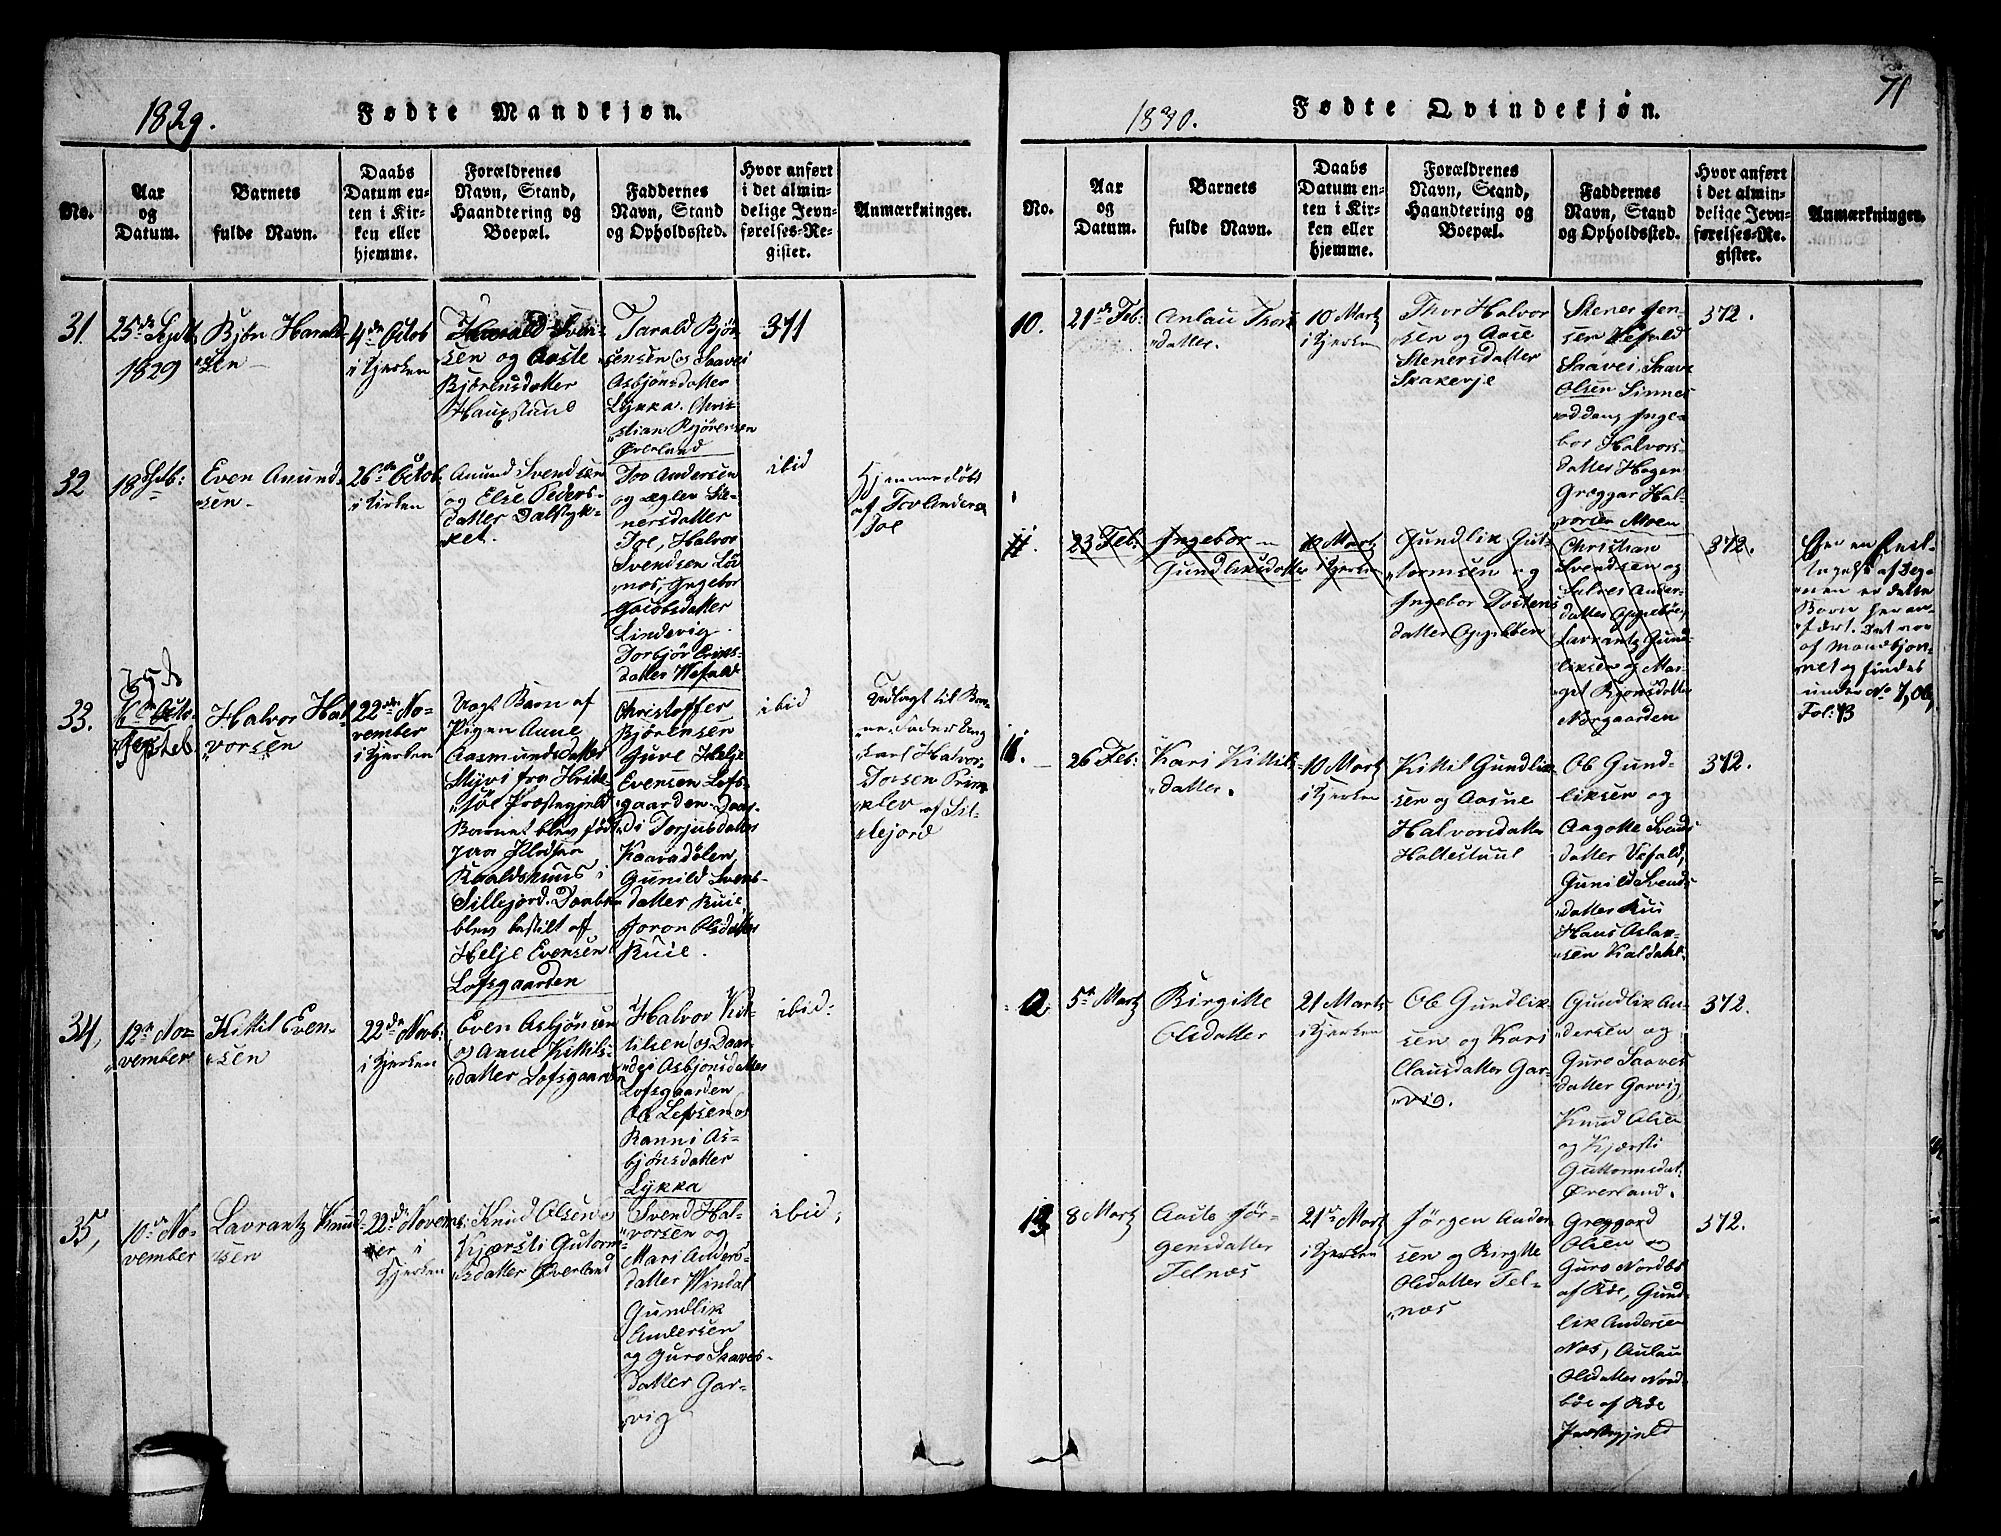 1829.
Fødte Mandkjøn.
No.
Aar
og
Datum.
Barnets
fulde Navn.
Daabs
Datum en-
ten i Kir-
ken eller
hjemme.
Forældrenes
Navn, Stand,
Haandtering og
Boepæl.
Faddernes
Navn, Stand
og Opholdssted.
Hvor anført
i det almin-
delige Jevn-
førelses-Re-
gister.
Anmærkninger.
31
25de Sept
1829
Bjørn Harald-
sen
4de Octob
i Kjerken
Harald Sven-
sen og Aaste
Bjørensdatter
Haugstuul
Tarald Bjør-
ensen og Saavei
Asbjønsdatter
Lykka. Chris-
stian Bjørensen
Øverland
371
32
18 Octb:
Even Amund-
sen
26de Octob.
i Kirken
Amund Svendsen
og Else Peders-
datter Dalstyk-
ket.
Tov Andersen
ogÆgler Ste-
nersdatter
Joe, Halvor
Svendsen Løv-
næs, Ingebor
Jacobsdatter
Lindevig.
Torbjør Eriks-
datter Wefald
ibid
Hjemmedøbt
af Tov Andersen
Joe
33.
6te Octo-
Halvor Hal-
vorsen
22de No-
vember
i Kjerken
Uægt Barn af
Pigen Anne
Aasmundsdatter
Myri fra Hvide-
søe Præstegjeld
Barnet blev født
paa Pladsen
Roaldshuus i
Sillejord. Daaben
blev bestilt af
Helje Evensen
Lofsgaarden
Christoffer
Bjørensen
Juve Helje
Evensen Lofs-
gaarden. Daar-
di Torjusdatter
Kaavedølen,
Gunild Svens-
datter Ruie,
Joron Olsdatter
Ruie.
ibid
Udlagt til Bar-
ne-Fader Ung-
karl Halvor
af Sil-
lejord
34,
12te No-
vember
Kittil Even-
sen
22de Novb:
i Kjerken
Even Asbjønsen
og Anne Kittils-
datter Lofsgaarden
Halvor Kit-
tilsen og Daar-
dei Asbjønsdatter
Lofsgaarden
Ole Leifsen og
Ranni As-
bjønsdatter
Lykka
ibid:
35,
10de No-
vember
Lavrantz Knud-
sen
22de Novem-
ber i
Kjerken
Knud Olsen
Kjersti Gutorm-
sdatter Øverland
Svend Hal-
vorsen og
Mari Anders-
datter Windal
Gundlik
Andersen
og Guro Saaves-
datter Gar-
vig
ibid;
71
1830.
Fødte Qvindekjøn.
No.
Aar
og
Datum.
Barnets
fulde Navn.
Daabs
Datum en-
ten i Kir-
ken eller
hjemme.
Forældrenes
Navn, Stand,
Haandtering og
Boepæl.
Faddernes
Navn, Stand
og Opholdssted.
Hvor anført
i det almin-
delige Jevn-
førelses-Re-
gister.
Anmærkninger.
10.
21de Feb:
Anlau Thors
datter.
10 Martz
i Kjerken
Thor Halvor
sen og Aase
Stenersdatter
Skakerje
Stener Jen-
sen Vefald
Saavei Saave
Olsen Sinnes
odden, Inge-
bor Halvors-
datter Hagen
Greggar Hal-
vorsen Moen
372.
11.
23 Feb:
Ingebor
Gundliksdatter
10 Martz
i Kjerken
Gundlik Gut-
tormsen og
Ingebor Tostens
datter Oppebøen
Christian
Svendsen og
Selves Anders-
datter Oppebøe,
Lavrantz Gund-
liksen og Mar-
get Bjønsdatter
Norgaarden
372.
Per en Feil-
tagelse af Beg-
nenen er dette
Barn her an-
ført. Det var
af Mandkjøn-
net og findes
under No 7,
11.
26 Feb:
Kari Kittils-
datter.
10 Martz
i Kjerken
Kittil Gundlik-
sen og Aasne
Halvorsdatter
Holtestuul
Ole Gund-
liksen og
Aagotte Svends
datter Vefald,
Gunild Svends-
datter Rui
Hans Aslak-
sen Kaldahl.
372.
12
5te Martz
Birgitte
Olsdatter
21 Martz
i Kjerken
Ole Gundlik-
sen og Kari
Clausdatter Gar-
vig.
Gundlik An-
dersen og
Guro Saaves-
datter Garvig,
Knud Olsen
og Kjersti
Guttormsdat:
Øverland.
372.
13
8 Martz
Aaste Jør-
gensdatter
Telnæs
21de Martz
i Kjerken
Jørgen Ander
sen og Birgitte
Olsdatter Tel-
næs
Greggard
Olsen og
Guro Nordbø
af Bøe, Gund-
lik Andersen
Næs, Aulau
Olsdatter Nord-
bøe af Bøe
Præstegjeld
372.